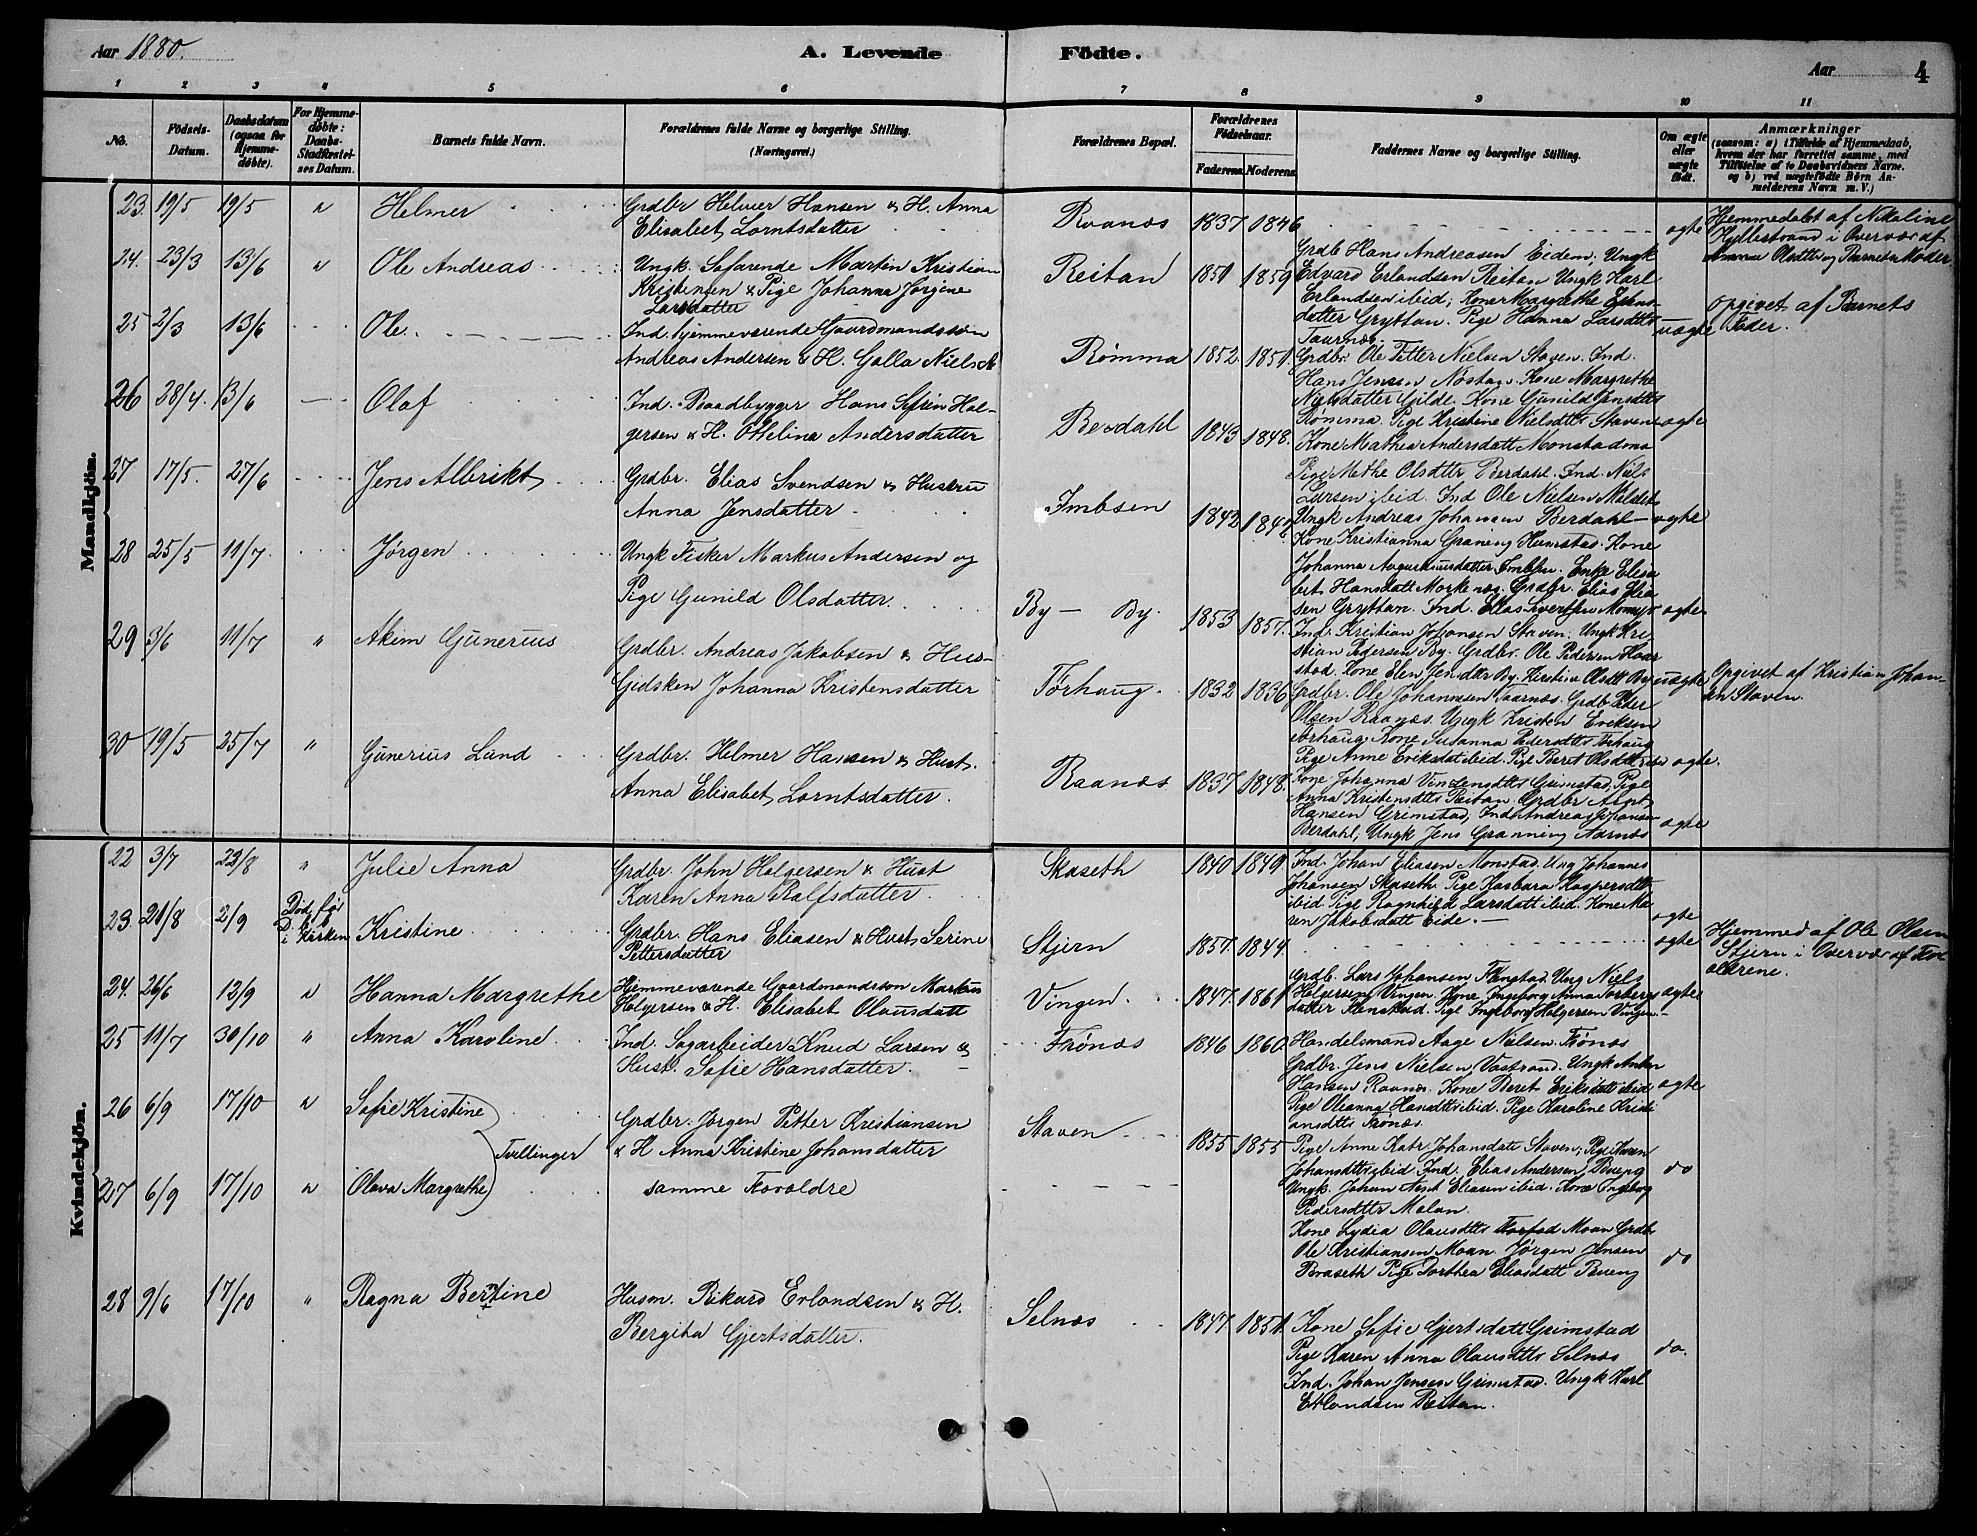 Aar 1880.
A. Levende
Födte.
Aar
4
1 2 3 4 5 6 7 8 9 10 11
No.
Födsels-
Datum.
Daabsdatum
(ogsaa for
Hjemme-
døbte).
For Hjemme-
døbte:
Daabs-
Stadfæstel-
ses Datum.
Barnets fulde Navn.
Forældrenes fulde Navne og borgerlige Stilling.
(Næringsvei.)
Forældrenes Bopæl.
Forældrenes
Födselsaar.
Faderens. Moderens.
Faddernes Navne og borgerlige Stilling.
Om ægte
eller
uægte
födt.
Anmærkninger
(saasom: a) i Tilfælde af Hjemmedaab,
hvem der har forrettet samme, med
Tilföielse af to Daabsvidners Navne.
og b) ved uægtefödte Börn An-
melderens Navn m. V.)
Mandkjön.
23. 19/5 19/5 " Helmer
Grdbr Helmer Hansen & H. Anna
Elisabet Lorntsdatter
Raanæs 1837 1846
ægte
Hjemmedøbt af Nikoline
Hjellestrand i Overvær af
Olsdtr og Barnets Moder
24. 23/3 13/6 " Ole Andreas
Ungk. Søfarende Martin Kristian
Kristensen & Pige Johanna Jørgine
Larsdatter
Reitan 1851 1859
Grdb Hans Andreasen Eidem, Ungk
Edvard Erlandsen Reitan Ungk Karl
Erlandsen ibid; Kone Margrethe
datter Gryttan. Pige Hanna Larsdtr
Taarnæs.
uægte
Opgivet af Barnets
Fader.
25 2/3 13/6 Ole
Ind. hjemmeværende Gaardmandssøn
Andreas Andersen & H. Golla Niels
Rømma 1852. 1851
Grdbr. Ole Petter Nielsen Staven. Ind.
Hans Jensen Nøstan. Kone Margrethe
Nielsdatter Gilde. Kone Gunild Jensdtr
Rømma. Pige Kristine Nielsdtr Staven
ægte
26 28/4. 13/6 Olaf
Ind. Baadbygger Hans Sefrin Hol-
gersen & H. Othelina Andersdatter
Berdahl 1843 1848.
Kone Mathea Andersdatt Monstadmo
Pige Methe Olsdtr Berdahl. Ind. Niels
Larsen ibid. Ind Ole Nielsen
Ungk Andreas Johansen Berdahl
ægte
27 17/5. 27/6 Jens Albrikt
Grdbr. Elias Svendsen & Hustru
Anna Jensdatter
Imbsen 1842
Kone Kristianna Graning Humstad. Kone
Johanna Augustinusdatter Imbsen. Enke Elisa
bet Hansdatt Grdbr. Elias Elia
sen Gryttan. Ind. Elias
ægte
28 25/5 11/7. Jørgen
Ungk Fisker Markus Andersen og
Pige Gunild Olsdatter
By — By. 1853 1857.
Ind. Kristian Johansen Staven. Ungk Kri
stian Pedersen By. Grdbr. Ole Pedersen
stad. Kone Elen By. Kirstine Olsdtt By
uægte
Opgivet af Kristian Johan-
sen Staven.
29 3/6 11/7 " Akim Gunerius
Grdbr. Andreas Jakobsen & Hus-
Gidsken Johanna Kristensdatter
Torhaug. 1832 1836
Grdbr. Ole Johannesen Taarnæs. Grdb Peder
Olsen Raanæs. Ungk Kristen Eriksen
Torhaug. Kone Susanna Pedersdtr Torhaug
Pige Anne Eriksdatt ibid. Pige Beret Olsdtt
ægte.
30 19/5 25/7 " Gunerius Lund
Grdbr. Helmer Hansen & Hust.
Anna Elisabet Lorntsdatter.
Raanæs 1837 1848.
Kone Johanna Vinzensdtr Grimstad, Pige
Anna Kristensdtr Reitan. Grdbr Arnt
Hansen Grimstad, Ind. Andreas Johansen
Berdahl, Ungk Jens Granning Aarnæs
ægte
Kvindekjön.
22 3/7 22/8 " Julie Anna
Grdbr. John Holgersen & Hust
Karen Anna Ralfsdatter.
Skaseth 1840 1849
Ind. Johan Eliasen Monstad, Ung Johannes
Johansen Skaseth. Pige Kaspersdtt
ibid Pige Ragnhild Larsdatt ibid. Kone Ma
ren Jakobsdatt Eide.
ægte
23 21/8 2/9 Kristine
Grdbr. Hans Eliasen & Hust. Serine
Pettersdatter
Stjern 1851. 1844.
ægte
Hjemmed af Ole Olsen
Stjern i Overvær af For
ældrene.
24. 26/6 12/9 " Hanna Margrethe
Hjemmeværende Gaardmandssøn Markus
Holgersen & H. Elisabet Olausdatt
Vingen. 1847. 1861
Grdb. Lars Johansen Ung Niels
Holgersen Vingen. Kone Ingeborg Anna
datter Stenstad. Pige Ingeborg Holgersen Vingen.
ægte
25 11/7 30/10 " Anna Karoline
Ind. Sagarbeider Knud Larsen &
Hust. Sofie Hansdatter.
Frønæs 1846 1860
Handelsmand Aage Nielsen Frønæs
Grdbr Jens Nielsen Vastrand. Ungk Anton
Hansen Raanæs. Kone Beret Eriksdatt ibid
Pige Olianna Hansdtt ibid. Pige Karoline Kristi
ansdtr Frønæs.
ægte
26 6/9 17/10 " Sofie Kristine
Tvillinger
Grdbr. Jørgen Petter Kristiansen
& H Anna Kristine Johansdatter
Staven 1855 1855
Pige Anne Katr. Johansdatt Staven; Pige Karen
Johansdtt ibid Ind. Elias Andersen Brueng
Ungk. Johan Arnt Eliasen ibid. Kone Ingeborg
Pedersdtr Melan.
do
27 6/9 17/10 " Olava Margrethe
samme Forældre
Kone Lydia Olausdtr Moan Grdb
Ole Kristiansen Moan. Jørgen Jensen
Braseth Pige Dorthea Eliasdatt Brueng
do
28 9/6 17/10 " Ragna Berntine
Husm. Rikard Erlandsen & H.
Bergitha Gjertsdatter.
Selnæs 1847. 1851
Kone Sofie Gjertsdatt Grimstad
Pige Karen Anna Olausdtr Selnæs
Ind. Johan Jensen Grimstad. Ungk Karl
Erlandsen Reitan.
do.